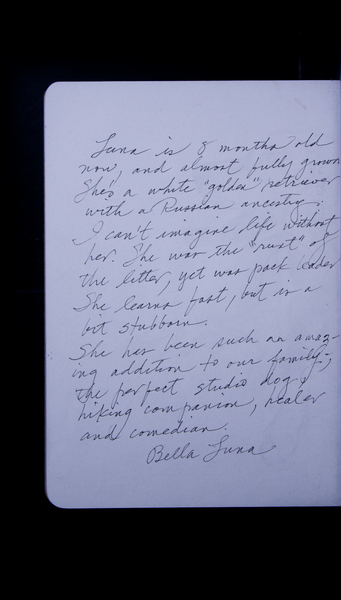 Luna is 8 months old
now, and almost fully grown
She's a white "golden" retriever
with a Russian ancestry.
I can't imagine life without
her. She was the "rust" of
the litter, yet was pack leader
She learns fast, but is a
bit stubborn.
She has been such an amaz-
ing addition to our family-,
the perfect studio dog,
hiking companion, healer
and comedian.
Bella Luna